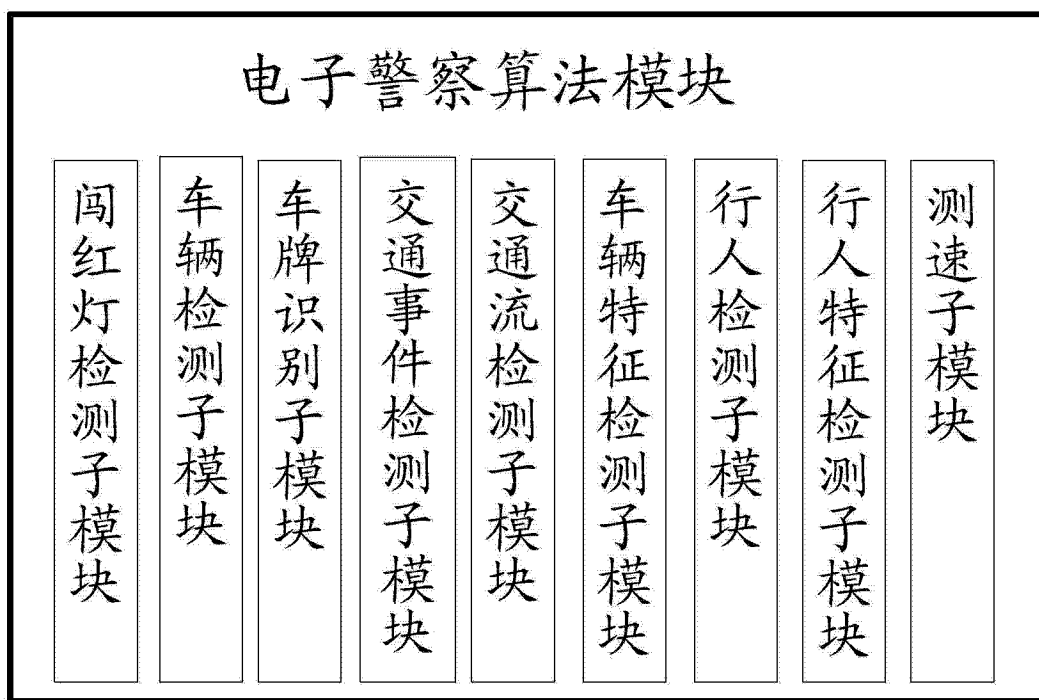 电子警察算法模块
闯红灯检测子模块
车辆检测子模块
车牌识别子模块
交通事件检测子模块
交通流检测子模块
车辆特征检测子模块
行人检测子模块
行人特征检测子模块
测速子模块